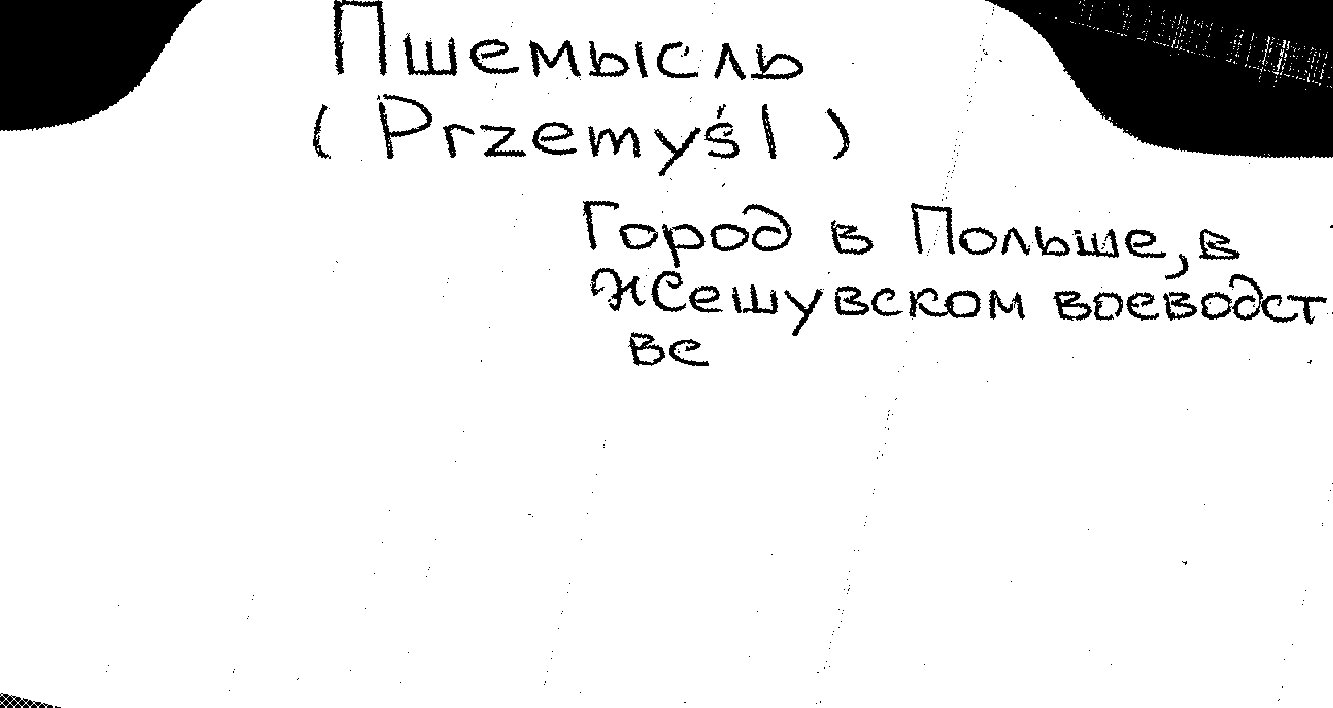 Пшемысль
(Przemyśl)
Город в Польше, в
Жешувском воеводст
ве